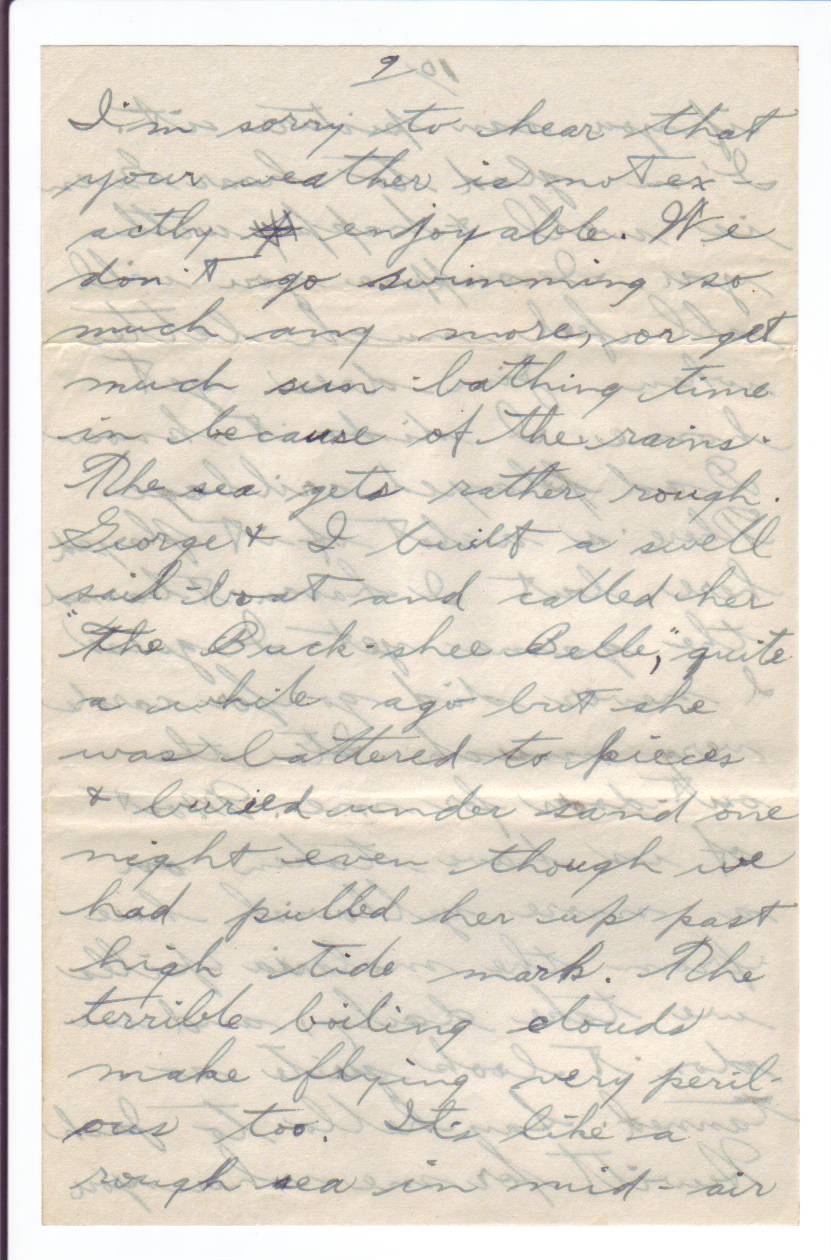 9
I'm sorry to hear that
your weather is not ex-
actly enjoyable. We
don't go swimming so
much any more, or get
much sun-bathing time
in because of the rains.
The sea gets rather rough.
George & I built a swell
sail-boat and called her
"the Buck-shee Belle," quite
a while ago but she
was battered to pieces
& buried under sand one
night even though we
had pulled her up past
high tide mark. The
terrible boiling clouds
make flying very peril-
ous too. It's like a
rough sea in mid-air